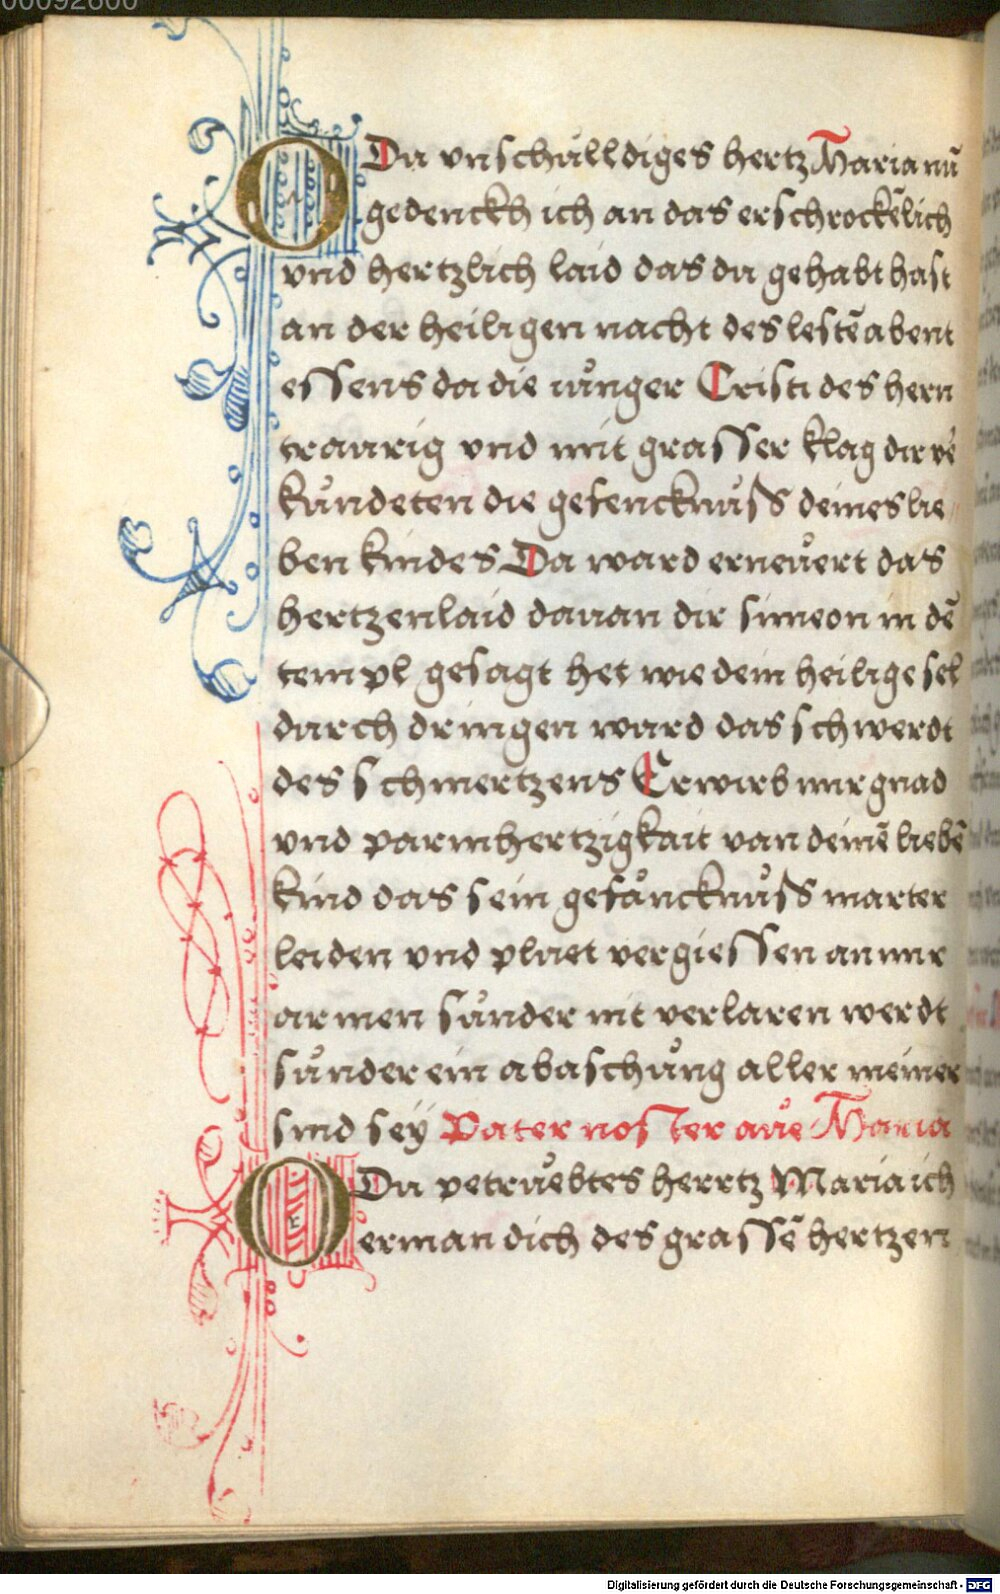 00092800
O Du vnschulldiges hertz Maria nū
gedenckh ich an das erschrockēlich
vnd hertzlich laid das du gehabt hast
an der heiligen nacht des lestē abent
essens da die iůnger Cristi des hern
traurig vnd mit grasser klag dir vē
kůndeten die gefencknůß deines lie
ben kindes Da ward erneůert das
hertzenlaid dauan dir simeon in dē
templ gesagt het wie dein heilige sel
durch dringen ward das schwerdt
des schmertzens Erwirb mir gnad
vnd parmhertzigkait van deinē liebē
kind das sein gefåncknůß marter
leiden vnd pluet vergiessen an mir
armen sůnder nit verlaren werdt
sůnder ein abaschůng aller meiner
sind seÿ Pater noster aůe Maria
O Du petrůebtes herrtz Maria ich
erman dich des grassē hertzen
Digitalisierung gefördert durch die Deutsche Forschungsgemeinschaft - DFG